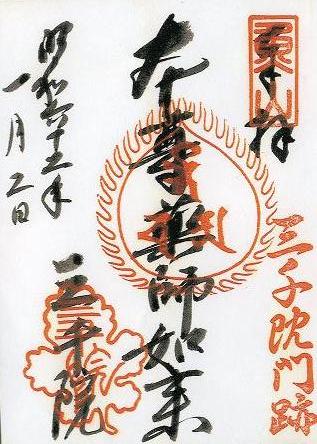 奉拝
三千院門跡
本尊薬師如来
三千院
昭和六十三年
一月二日